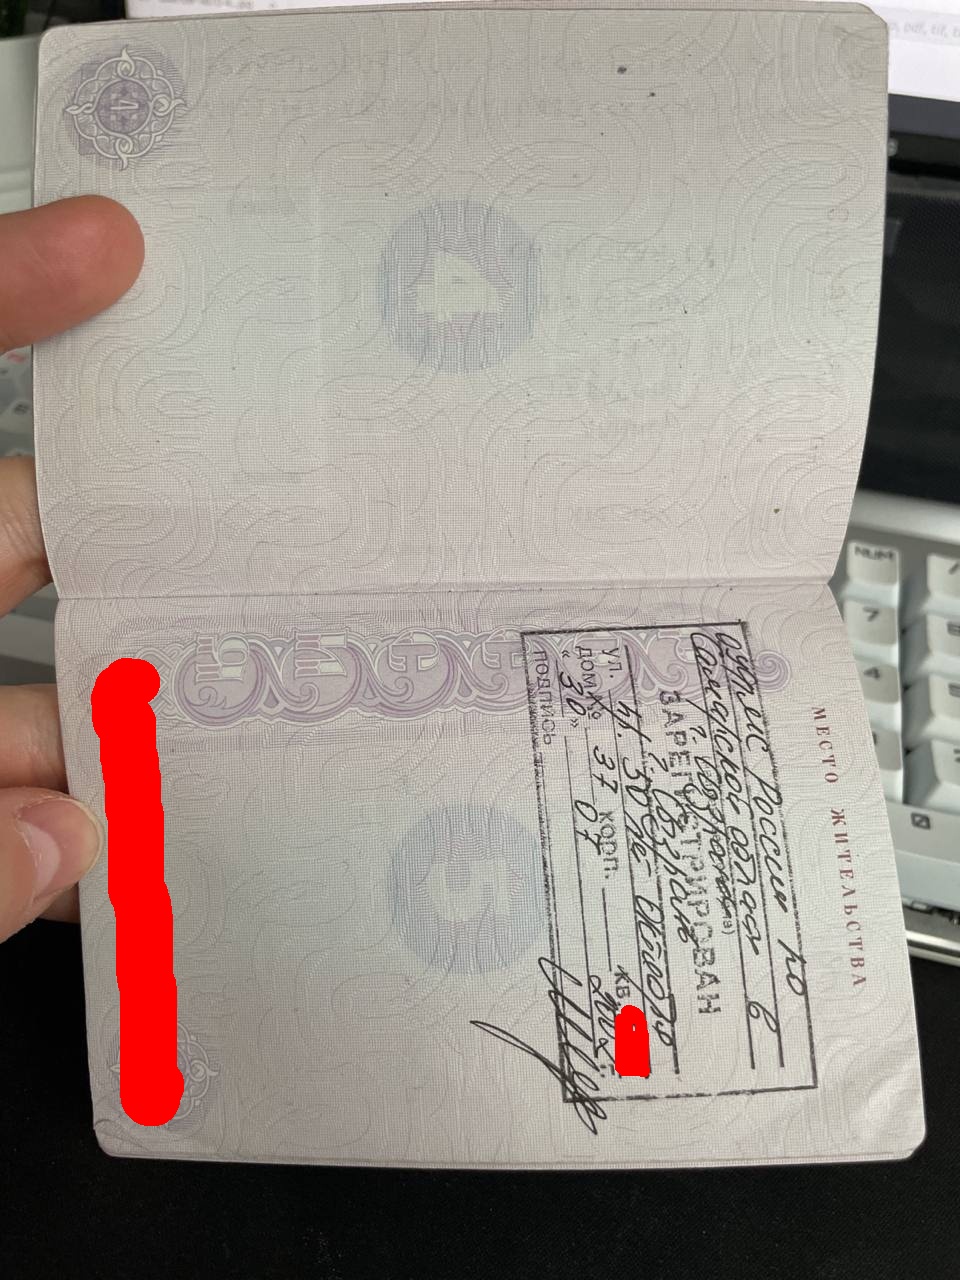 МЕСТО ЖИТЕЛЬСТВА
России по
Самарской области в
г. Сызрани
ЗАРЕГИСТРИРОВАН
г. Сызрань
ул. 30 лет Октября
дом № 37 корп. кв.
«30» 07
подпись
4
5
NUM
7